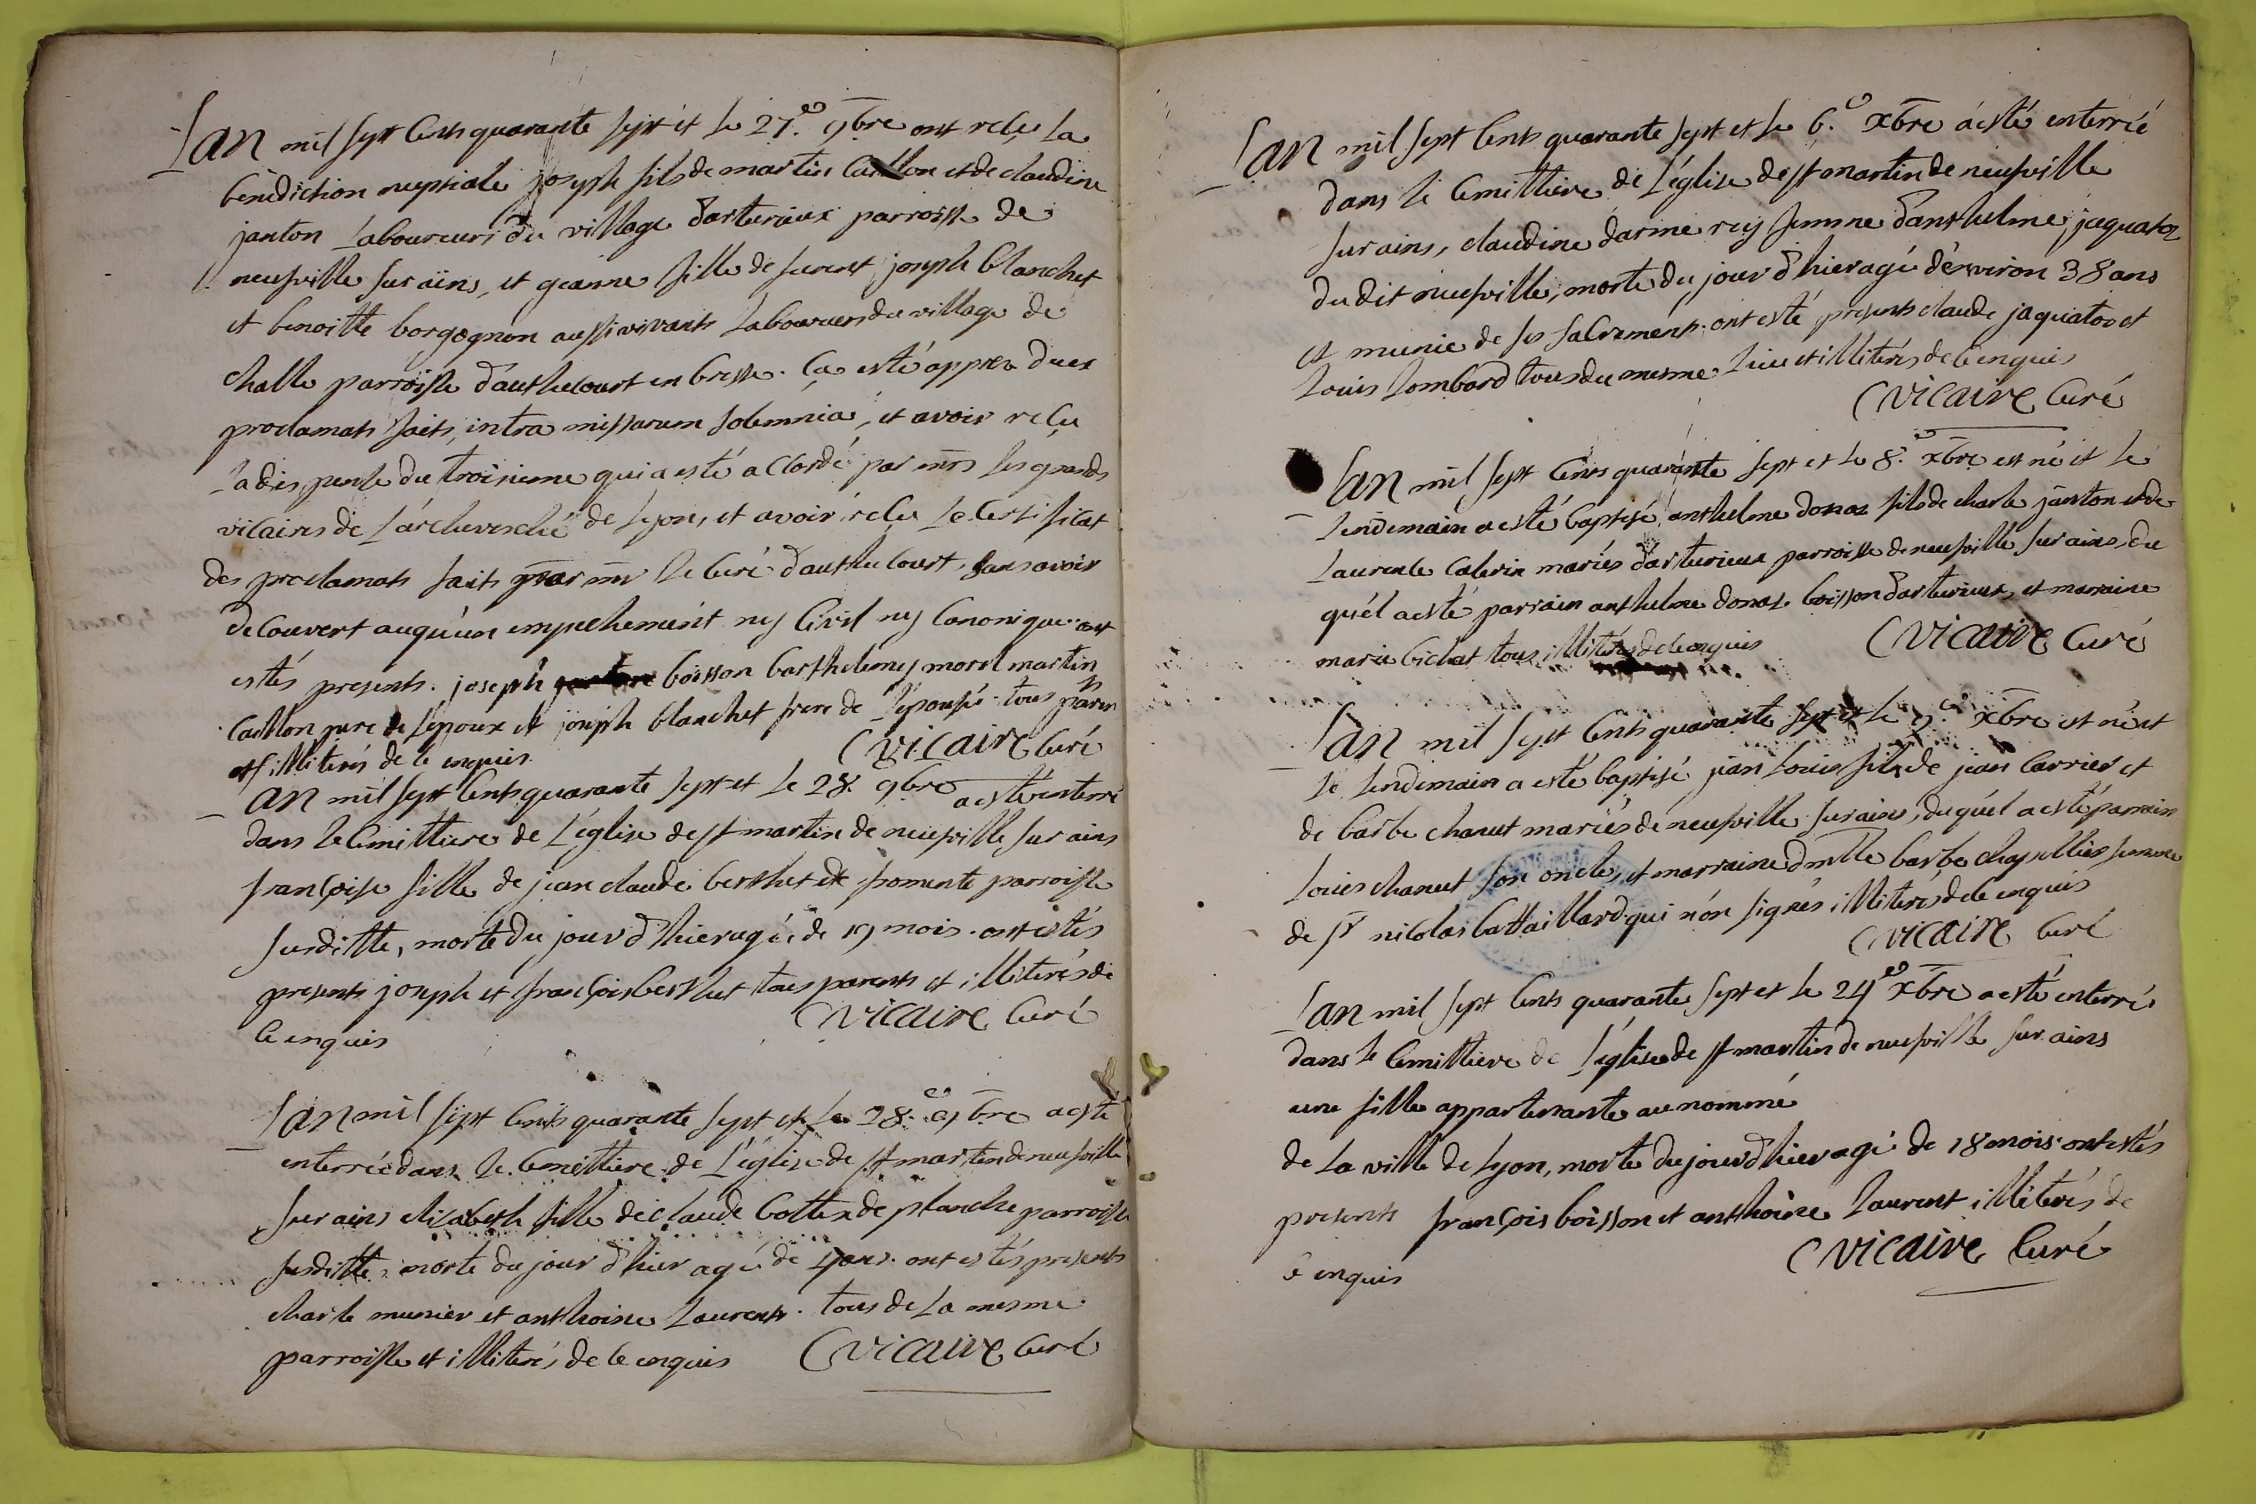 Lan mil sept cents quarante sept et le 27.e 9bre ont reçu la
bénédiction nuptiale joseph fils de martin Caillon et de claudine
janton laboureurs du village darturieux parroisse de
neufville sur ains, et jeanne fille de furent joseph blanchet
et benoitte borgognon aussi vivants laboureurs du village de
challe parroisse d'authecourt en bresse. ça esté apprez duex
proclamats faits, intra missarum solemnia, et avoir reçu
la dispense du troisieme qui a esté accordé par mrs les grands
vicaires de l'archevesché de Lyon, et avoir reçu le certificat
des proclamats faits par mr le curé d'authecourt, sans avoir
découvert auqu'un empechement ny civil ny canonique. ont
estés presents. joseph boisson barthelemy morel martin
Caillon pere de l'epoux et joseph blanchet frere de l'épouse. tous parents
et illiterés de ce enquis
Cvicaire Curé
Lan mil sept cents quarante sept et le 28. 9bre a esté enterré
dans le cemittiere de l'église de st martin de neufville sur ains
françoise fille de jean claude berthet de fromente parroisse
susditte, morte du jour d'hier agée de 19 mois. ont estés
presents joseph et françois berthet tous parents et illiterés de
ce enquis
Cvicaire Curé
Lan mil sept cents quarante sept et le 28.e 9bre a esté
enterrée dans le cemittiere de l'église de st martin de neufville
sur ains elisabeth fille de claude bottex de planche parroisse
susditte, morte du jour d'hier agé de 4 ans. ont estés presents
charle munier et anthoine laurent. tous de la mesme
parroisse et illiterés de ce enquis
Cvicaire Curé
Lan mil sept cents quarante sept et le 6.e xbre a esté enterrée
dans le cemittiere de l'église de st martin de neufville
sur ains, claudine darmerey femme d'anthelme jaquatoz
du dit neufville, morte du jour d'hier agé d'environ 38 ans
et munie de ses sacrements. ont esté presents claude jaquatoz et
louis lombard tous du mesme lieu et illiterés de ce enquis
Cvicaire Curé
Lan mil sept cents quarante sept et le 8.e xbre est né et le
lendemain a esté baptisé anthelme donat fils de charle janton et de
laurence calerin mariés d'arturieux parroisse de neufville sur ains, du
quél a esté parrain anthelme donat boisson d'arturieux, et marraine
marie bichat tous illiterés de ce enquis
Cvicaire Curé
Lan mil sept cents quarante sept et le 9.e xbre est né et
le lendemain a esté baptisé jean louis fils de jean carrier et
de barbe chanut mariés de neufville sur ains, duquél a esté parrain
louis chanut son oncle, et marraine dmlle barbe chapellier femme
de sr nicolas battaillard qui n'on signés illiterés de ce enquis
Cvicaire Curé
Lan mil sept cents quarante sept et le 24e xbre a esté enterré
dans le cemittiere de l'église de st martin de neufville sur ains
une fille appartenante au nommé
de la ville de Lyon, morte du jour d'hier agé de 18 mois. ont estés
presents françois boisson et anthoine laurent illiterés de
ce enquis
Cvicaire Curé